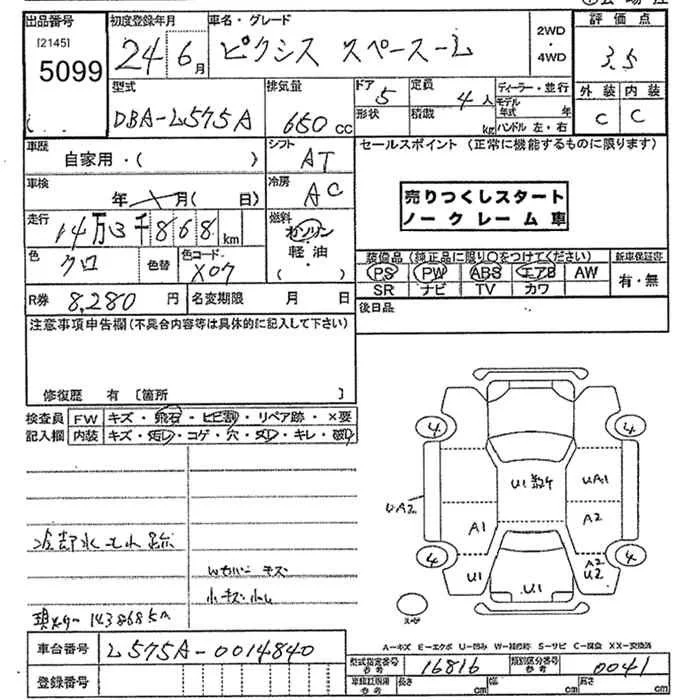 出品番号 初度登録年月 車名・グレード 2WD・4WD 評価点
[2145]
5099
24年6月 ピクシス スペース-L
3.5
型式 排気量 ドア 5 定員 4人 ディーラー・並行 外装 内装
形状 積載 kg モデル年式 年 ハンドル 左・右
DBA-L575A 650cc
C C
車歴 自家用・( ) シフト AT セールスポイント (正常に機能するものに限ります)
車検 年 月( 日) 冷房 AC
売りつくしスタート
ノークレーム車
走行 14万3千868km 燃料 ガソリン・軽油( )
色 クロ 色替 色コード X07
装備品 (純正品に限り○をつけてください) 新車保証書
PS PW ABS エアB AW 有・無
SR ナビ TV カワ
R券 8,280円 名変期限 月 日 後日品
注意事項申告欄(不具合内容等は具体的に記入して下さい)
修復歴 有 [箇所 ]
検査員 FW キズ・飛石・ヒビ割・リペア跡・×要
記入欄 内装 キズ・汚レ・コゲ・穴・スレ・キレ・破レ
冷却水もれ跡
Wカバーキズ
小キズ小凹
現メーター 143868km
4 4
U1数ケ UA1
UA2
A1 A2
4 4
U1 U1 A2
U2
スペア
A-キズ E-エクボ U-凹み W-補修跡 S-サビ C-腐食 XX-交換済
車台番号 L575A-0014840
型式指定番号 参考 16816 類別区分番号 参考 0041
登録番号 車検証記載 参考 長さ cm 幅 cm 高さ cm